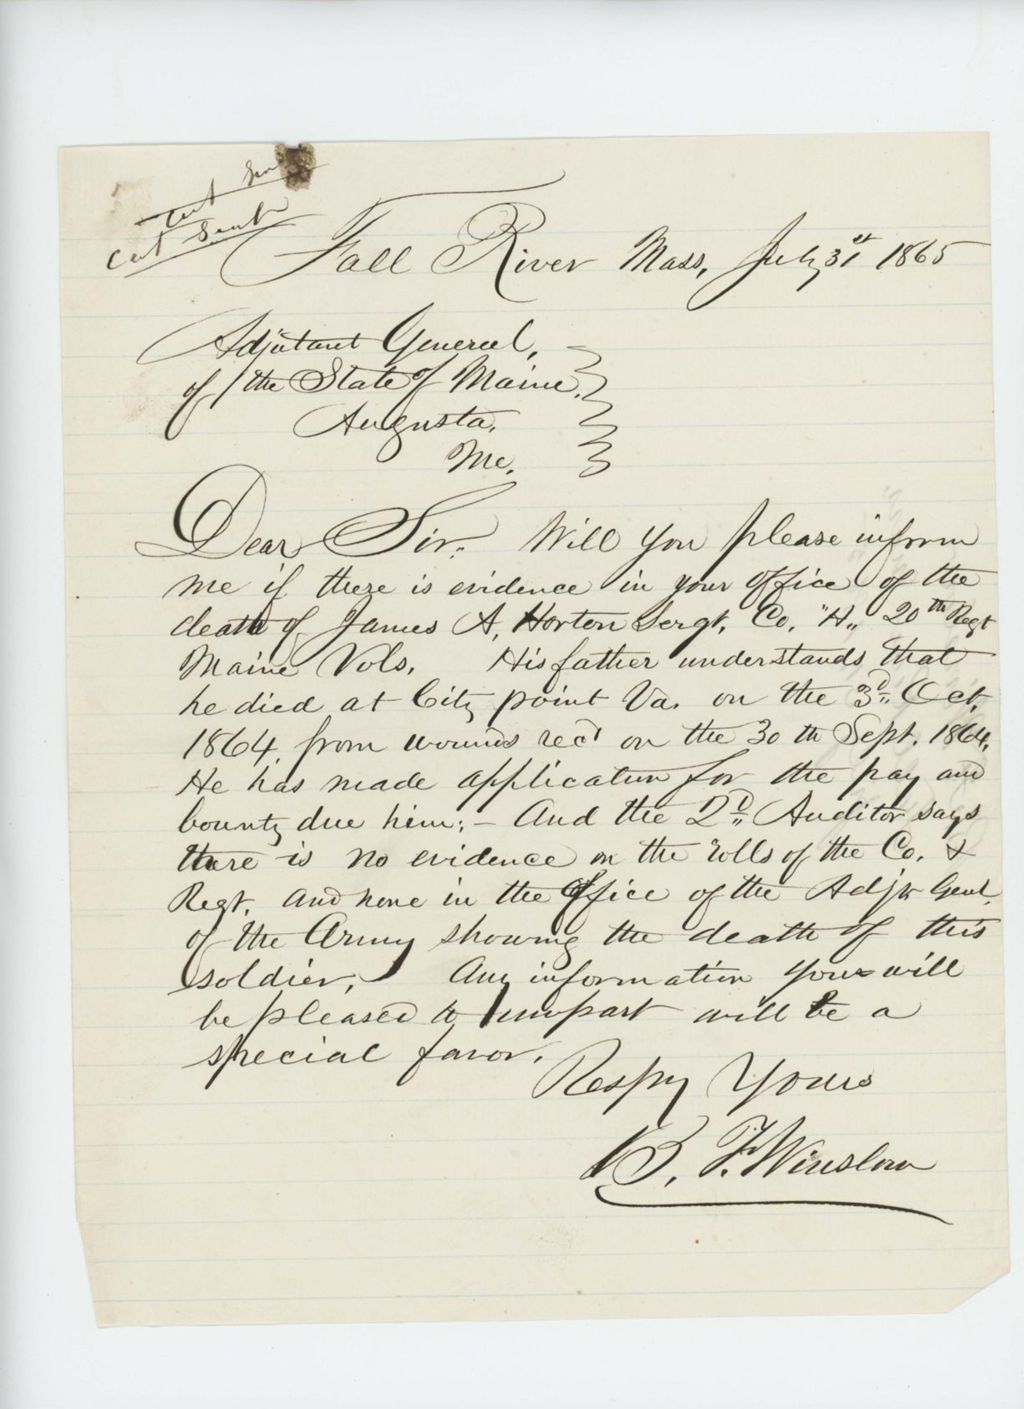 Cert Sent
Cert Sent
Fall River Mass, July 31st 1865
Adjutant General,
of the State of Maine.
Augusta,
Me.
Dear Sir. Will you please inform
me if there is evidence in your office of the
death of James A, Horton Sergt, Co, "H,, 20th Regt
Maine Vols. His father understands that
he died at City point Va. on the 3d Oct.
1864, from wounds recd on the 30th Sept. 1864,
He has made application for the pay and
bounty due him; – And the 2d Auditor says
there is no evidence on the rolls of the Co. &
Regt. and none in the Office of the Adjt Genl,
of the Army showing the death of this
soldier, Any information you will
be pleased to impart will be a
special favor.
Respy Yours
B. F. Winslow